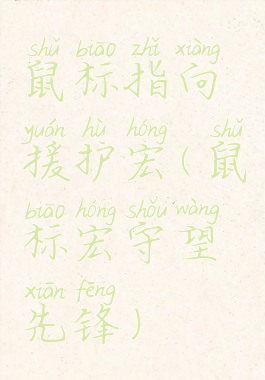 shǔ biāo zhǐ xiàng
鼠标指向
yuán hù hóng shǔ
援护宏(鼠
biāo hóng shǒu wàng
标宏守望
xiān fēng
先锋)